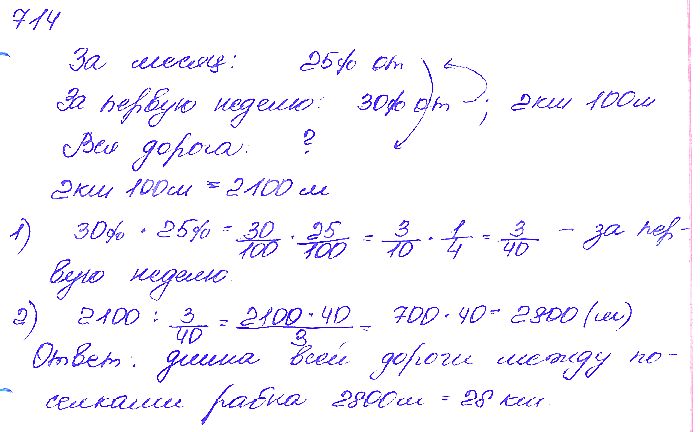 714
За месяц: 25% от
За первую неделю: 30% от ; 2км 100м
Вся дорога: ?
2км 100м = 2100 м
1) 30% · 25% = 30/100 · 25/100 = 3/10 · 1/4 = 3/40 – за пер-
вую неделю.
2) 2100 : 3/40 = 2100 · 40/3 = 700 · 40 = 2800 (м)
Ответ: длина всей дороги между по-
селками равна 2800м = 28 км.